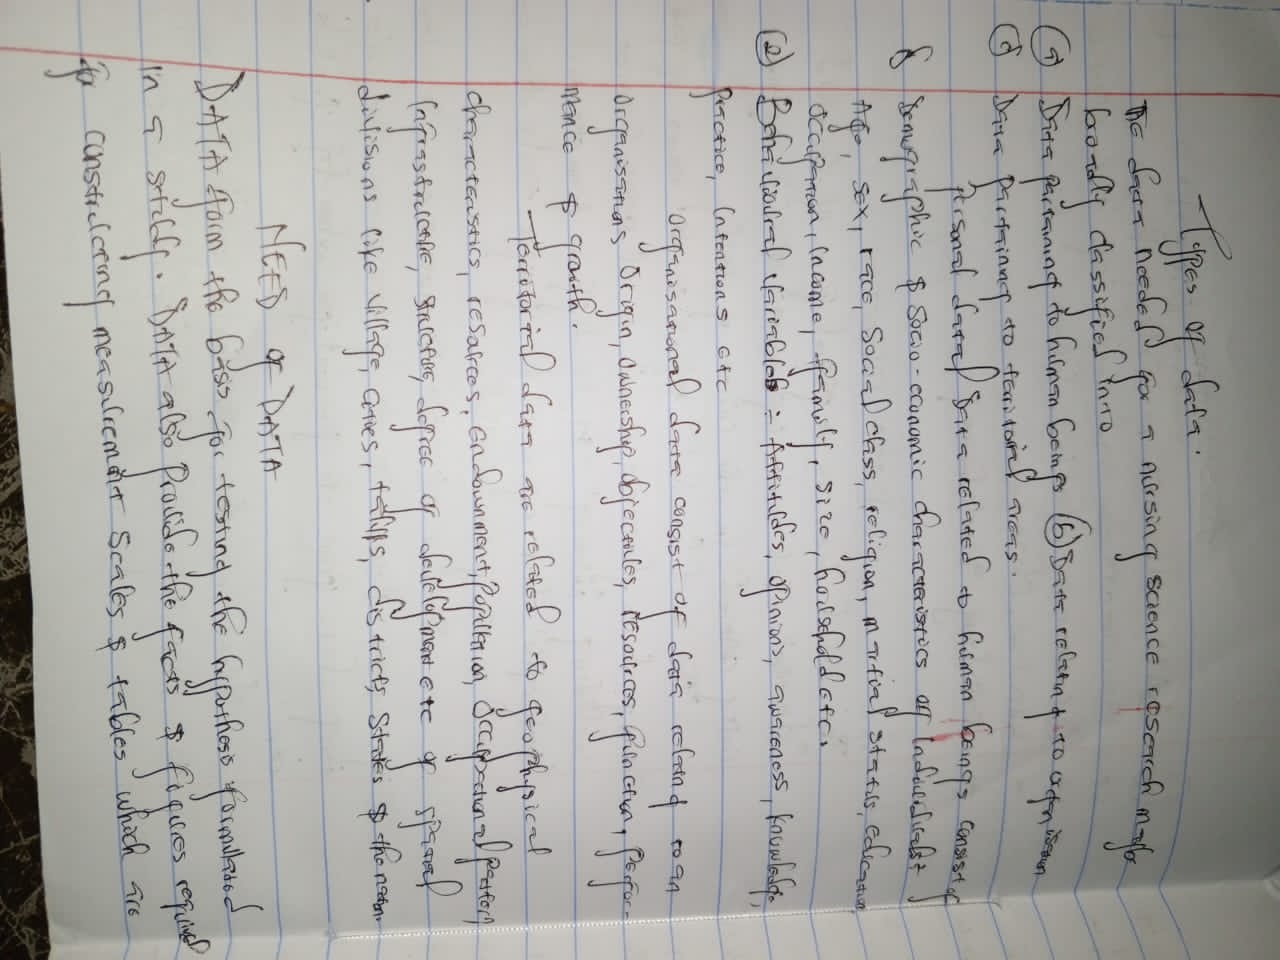 Types of data.
The data needed for a nursing science research may be
broadly classified into
(a) Data pertaining to human beings (b) Data relating to organisation
(c) Data pertaining to territorial areas.
personal data: Data related to human beings consist of
Demographic & Socio-economic characteristics of individuals:
Age, sex, race, social class, religion, marital status, education
Occupation, income, family, size, household etc.
(2) Behavioural variables: Attitudes, opinions, awareness, knowledge,
Practice, Intentions etc
Organisational data consist of data relating to an
Organisations Origin, ownership, objectives, resources, function, perfor-
mance & growth.
Territorial data are related to geophysical
characteristics, resources, endownment, Population, Occupational pattern,
Infrastructure, structure, degree of development etc of spatial
divisions like village, cities, talups, districts, states & the nation.
NEED of DATA
DATA form the basis for testing the hypothesis formulated
in a study. DATA also provide the facts & figures required
for constructing measurement scales & tables which are